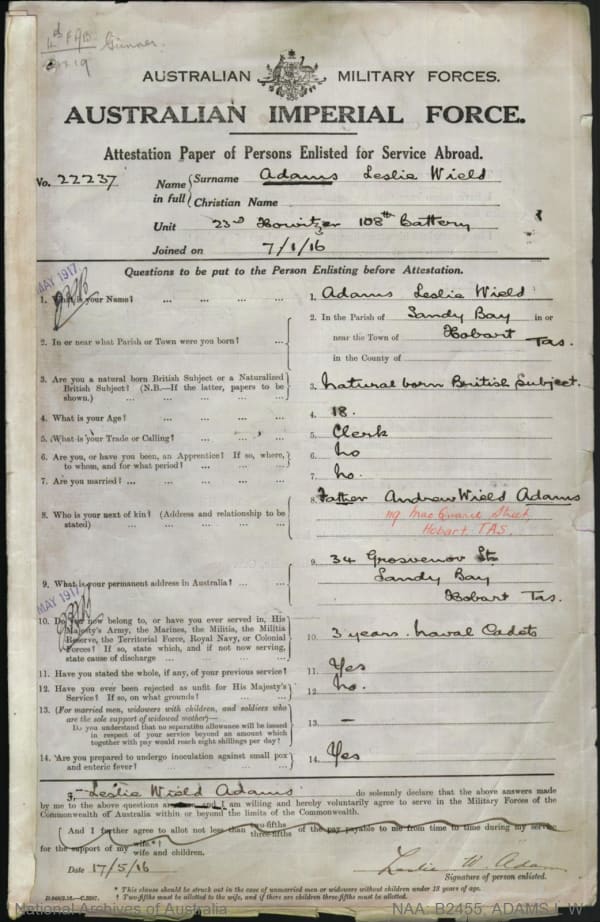 Gunner
AUSTRALIAN MILITARY FORCES.
AUSTRALIAN IMPERIAL FORCE.
Attestation Paper of Persons Enlisted for Service Abroad.
No. 22237
Name in full Surname Adams Leslie Wield
Christian Name
Unit 23rd Howitzer 108th Battery
Joined on 7/1/16
Questions to be put to the Person Enlisting before Attestation.
MAY 1917
1. What is your Name? ... ... ... ... 1. Adams Leslie Wield
2. In or near what Parish or Town were you born? ... 2. In the Parish of Sandy Bay in or
near the Town of Hobart Tas.
in the County of
3. Are you a natural born British Subject or a Naturalized
British Subject? (N.B.—If the latter, papers to be
shown.) ... ... ... ... ... 3. Natural born British Subject.
4. What is your Age? ... ... ... ... 4. 18.
5. What is your Trade or Calling? ... ... ... 5. Clerk
6. Are you, or have you been, an Apprentice? If so, where,
to whom, and for what period? ... ... ... 6. No
7. Are you married? ... ... ... ... ... 7. No.
8. Who is your next of kin? (Address and relationship to be
stated) ... ... ... ... ... 8. Father Andrew Wield Adams
119 Macquarie Street
Hobart TAS.
9. What is your permanent address in Australia? ... ... 9. 34 Grosvenor St
Sandy Bay
Hobart Tas.
MAY 1917
10. Do you now belong to, or have you ever served in, His
Majesty's Army, the Marines, the Militia, the Militia
Reserve, the Territorial Force, Royal Navy, or Colonial
Forces? If so, state which, and if not now serving,
state cause of discharge ... ... ... ... 10. 3 years. Naval Cadets
11. Have you stated the whole, if any, of your previous service? 11. Yes
12. Have you ever been rejected as unfit for His Majesty's
Service? If so, on what grounds? ... ... 12. No.
13. (For married men, widowers with children, and soldiers who
are the sole support of widowed mother)—
Do you understand that no separation allowance will be issued
in respect of your service beyond an amount which
together with pay would reach eight shillings per day? 13. –
14. Are you prepared to undergo inoculation against small pox
and enteric fever? ... ... ... ... 14. Yes
I, Leslie Wield Adams do solemnly declare that the above answers made
by me to the above questions are and I am willing and hereby voluntarily agree to serve in the Military Forces of the
Commonwealth of Australia within or beyond the limits of the Commonwealth.
(And I further agree to allot not less than two-fifths three-fifths of the pay payable to me from time to time during my service
for the support of my wife* wife and children.
Date 17/5/16 Leslie W. Adams
Signature of person enlisted.
* This clause should be struck out in the case of unmarried men or widowers without children under 18 years of age.
† Two-fifths must be allotted to the wife, and if there are children three-fifths must be allotted.
National Archives of Australia NAA: B2455, ADAMS L W